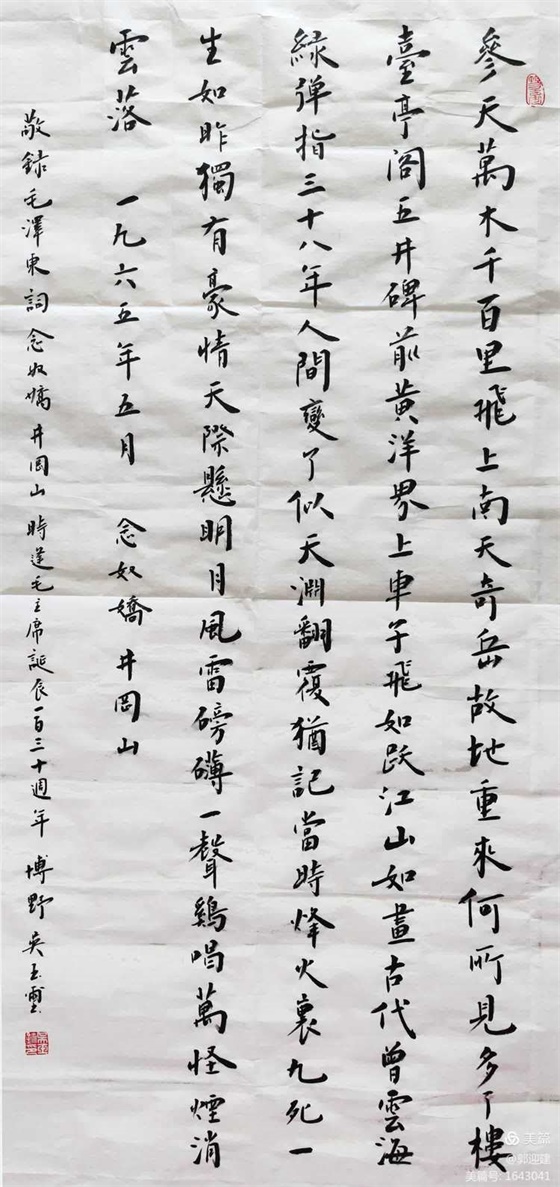 參天萬木千百里飛上南天奇岳故地重來何所見多了樓
臺亭阁五井碑前黄洋界上車子飛如跃江山如畫古代曾雲海
緑弹指三十八年人間變了似天淵翻覆猶記當時烽火裏九死一
生如昨獨有豪情天際懸明月風雷磅礴一聲鷄唱萬怪煙消
雲落 一九六五年五月 念奴嬌 井岡山
敬録毛澤東詞念奴嬌井岡山 時逢毛主席誕辰一百三十週年 博野吴玉
美篇
@郭迎建
美篇号: 1643041